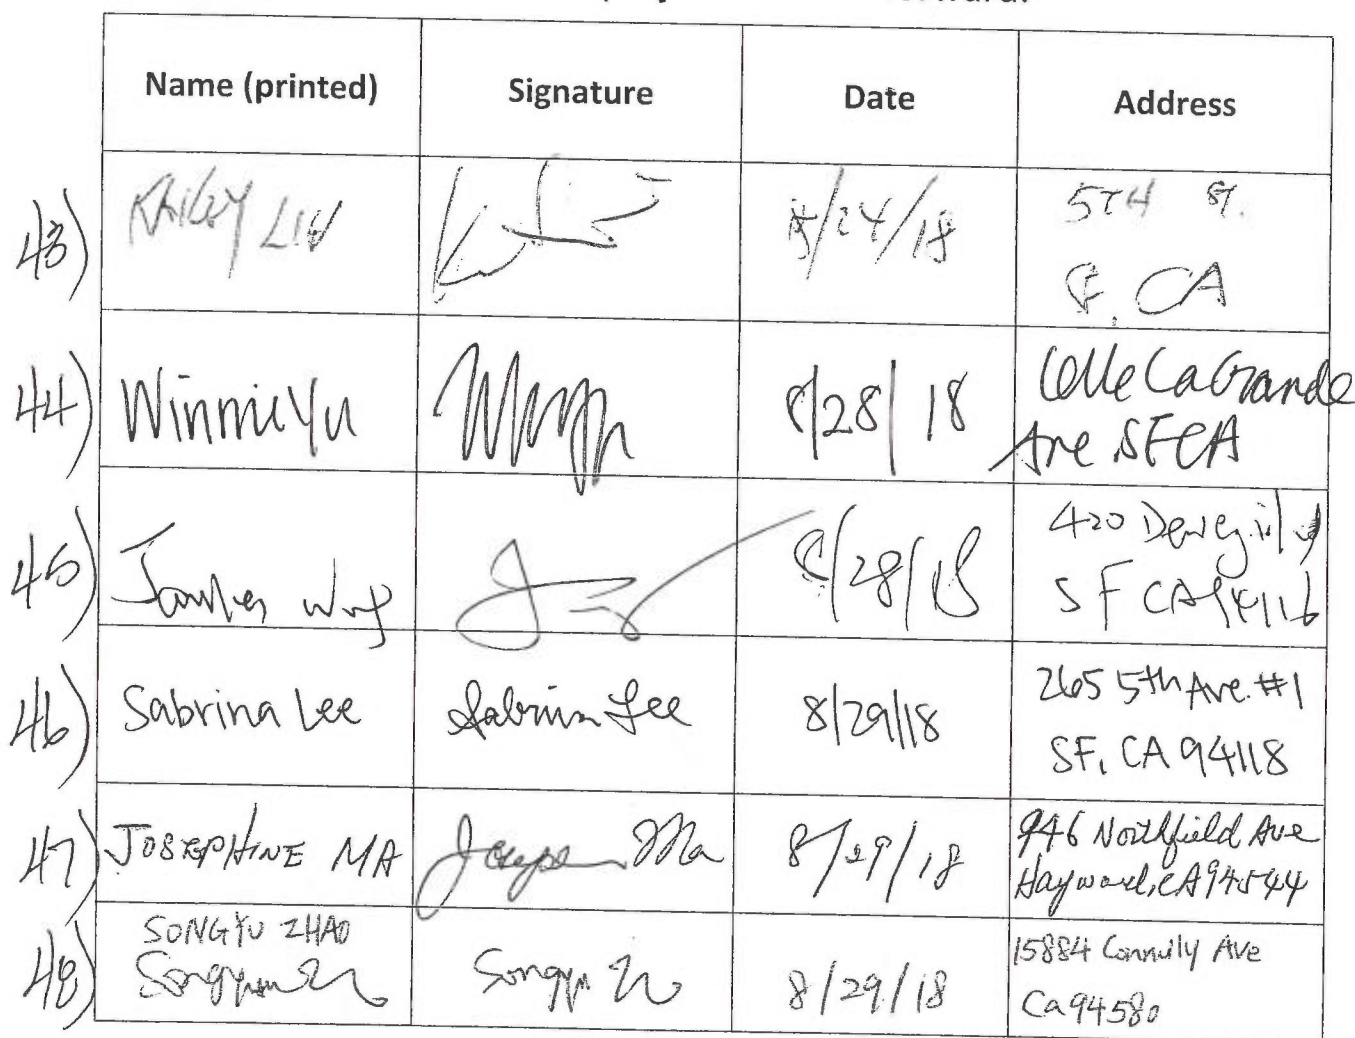 Name (printed) Signature Date Address
43) LIU 8/24/18 5TH ST.
SF, CA
44) Winnie Yu 8/28/18 LaGrande
Ave SFCA
45) James 8/28/18 420 Dewey
SF CA 94116
46) Sabrina Lee Sabrina Lee 8/29/18 265 5th Ave. #1
SF, CA 94118
47) JOSEPHINE MA Ma 8/29/18 946 Northfield Ave
Hayward, CA 94544
48) SONGYU ZHAO 8/29/18 15884 Ave
Ca 94580